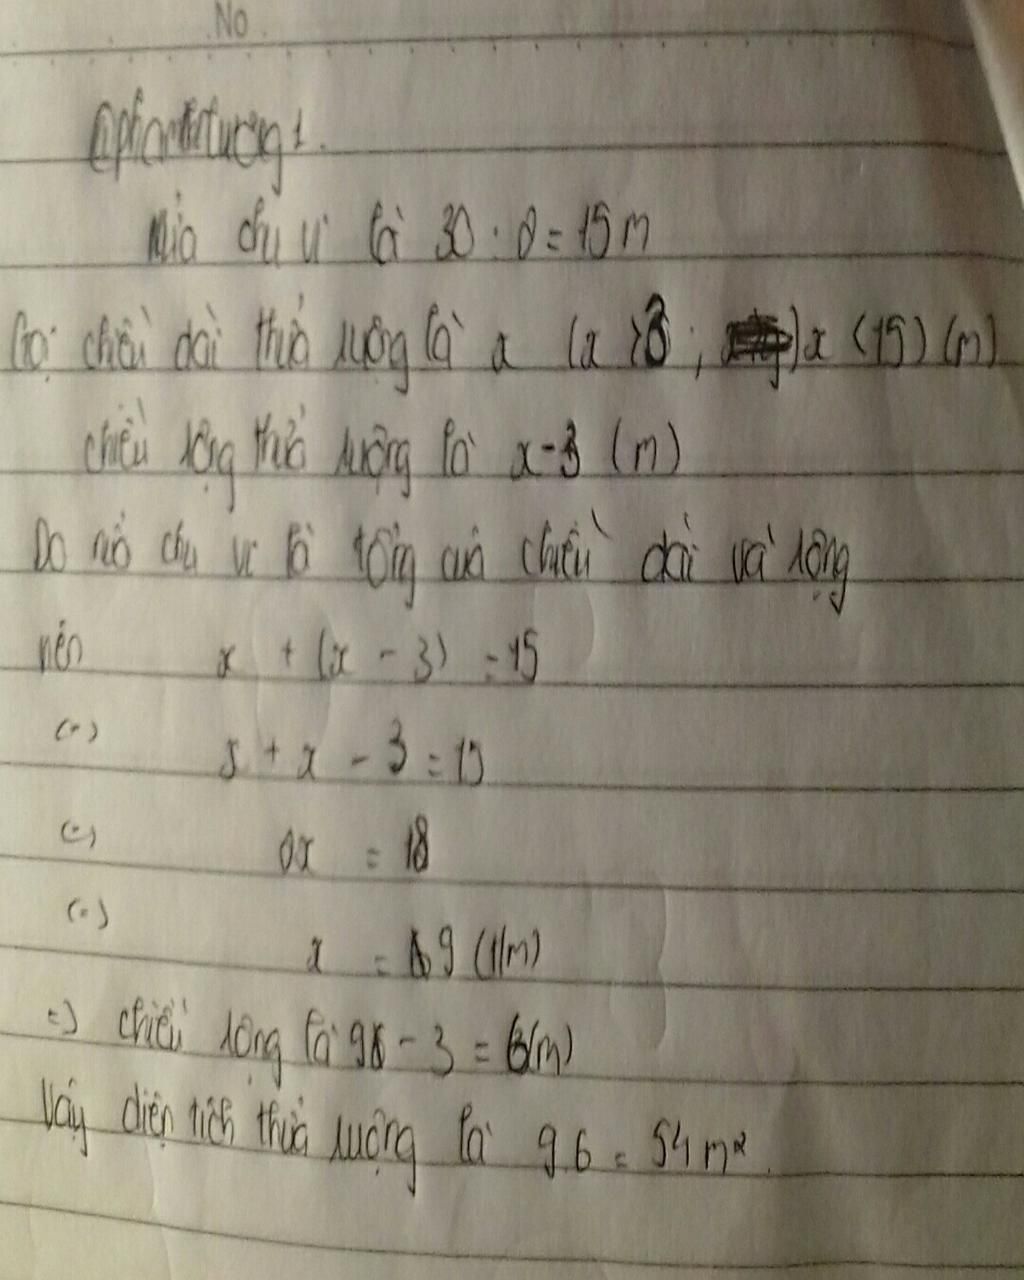 No
@phamtuong1.
Nửa chu vi là 30 : 2 = 15 m
Gọi chiều dài thửa ruộng là x (x > 3 ; x < 15) (m)
chiều rộng thửa ruộng là x - 3 (m)
Do nửa chu vi là tổng của chiều dài và rộng
nên x + (x - 3) = 15
(=) x + x - 3 = 15
(=) 2x = 18
(=) x = 9 (T/m)
=) chiều rộng là 9 - 3 = 6(m)
Vậy diện tích thửa ruộng là 9.6 = 54 m²